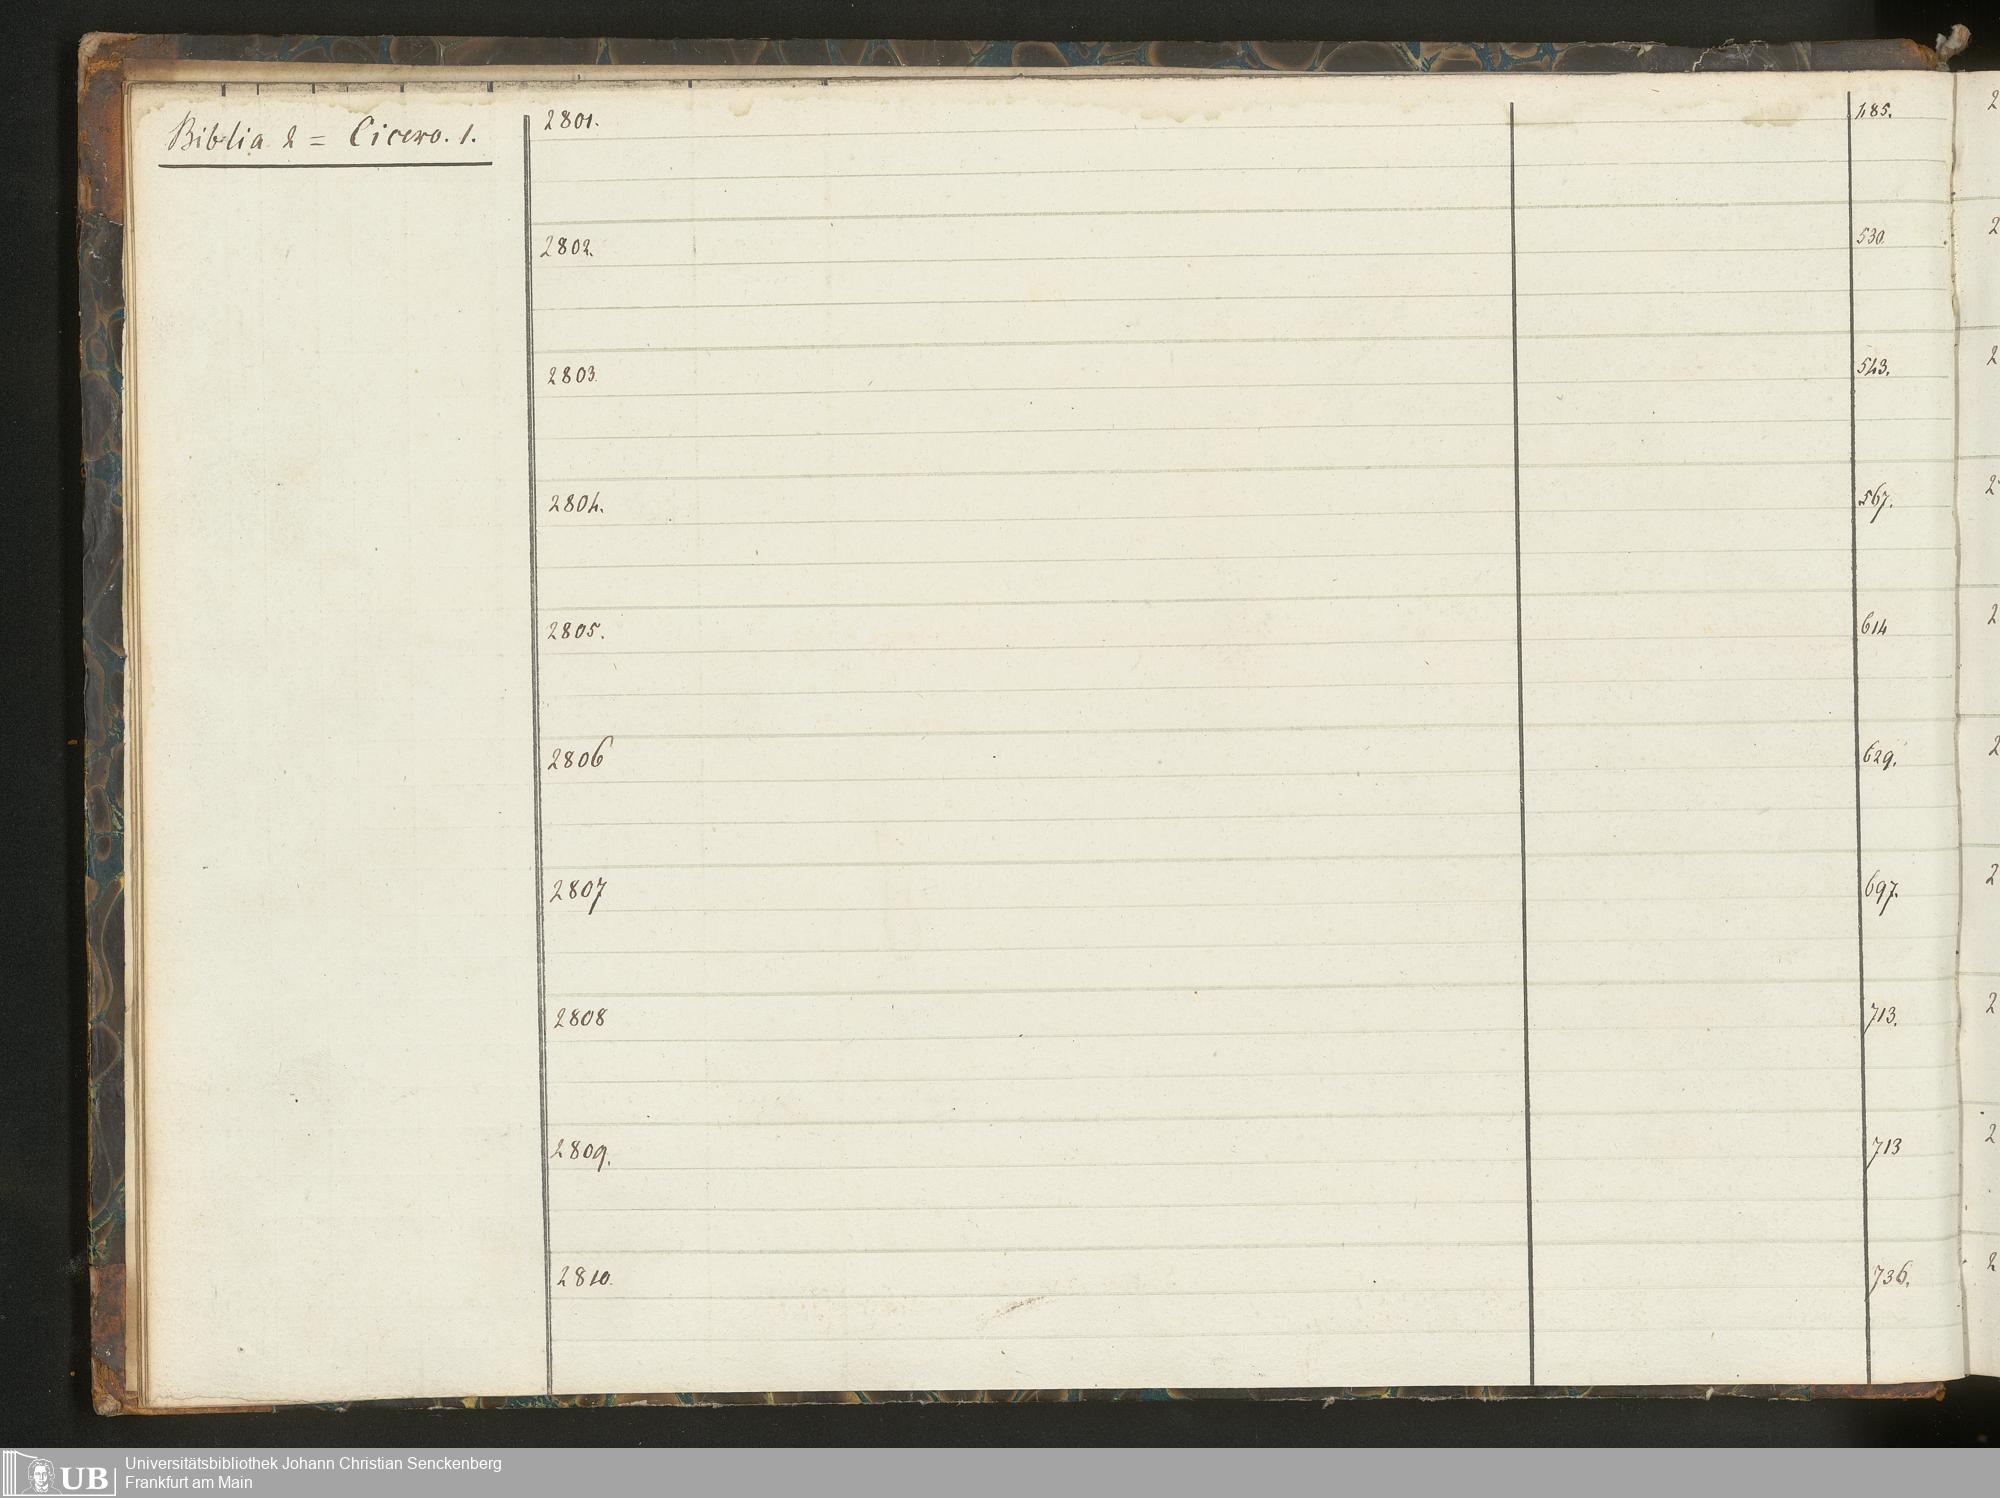 Biblia 2 = Cicero. 1.
2801. 485.
2802. 530
2803. 543.
2804. 567.
2805. 614
2806 629.
2807 697.
2808 713.
2809. 713
2810. 736.
2
2
2
2
2
2
2
2
2
2
UB
Universitätsbibliothek Johann Christian Senckenberg
Frankfurt am Main